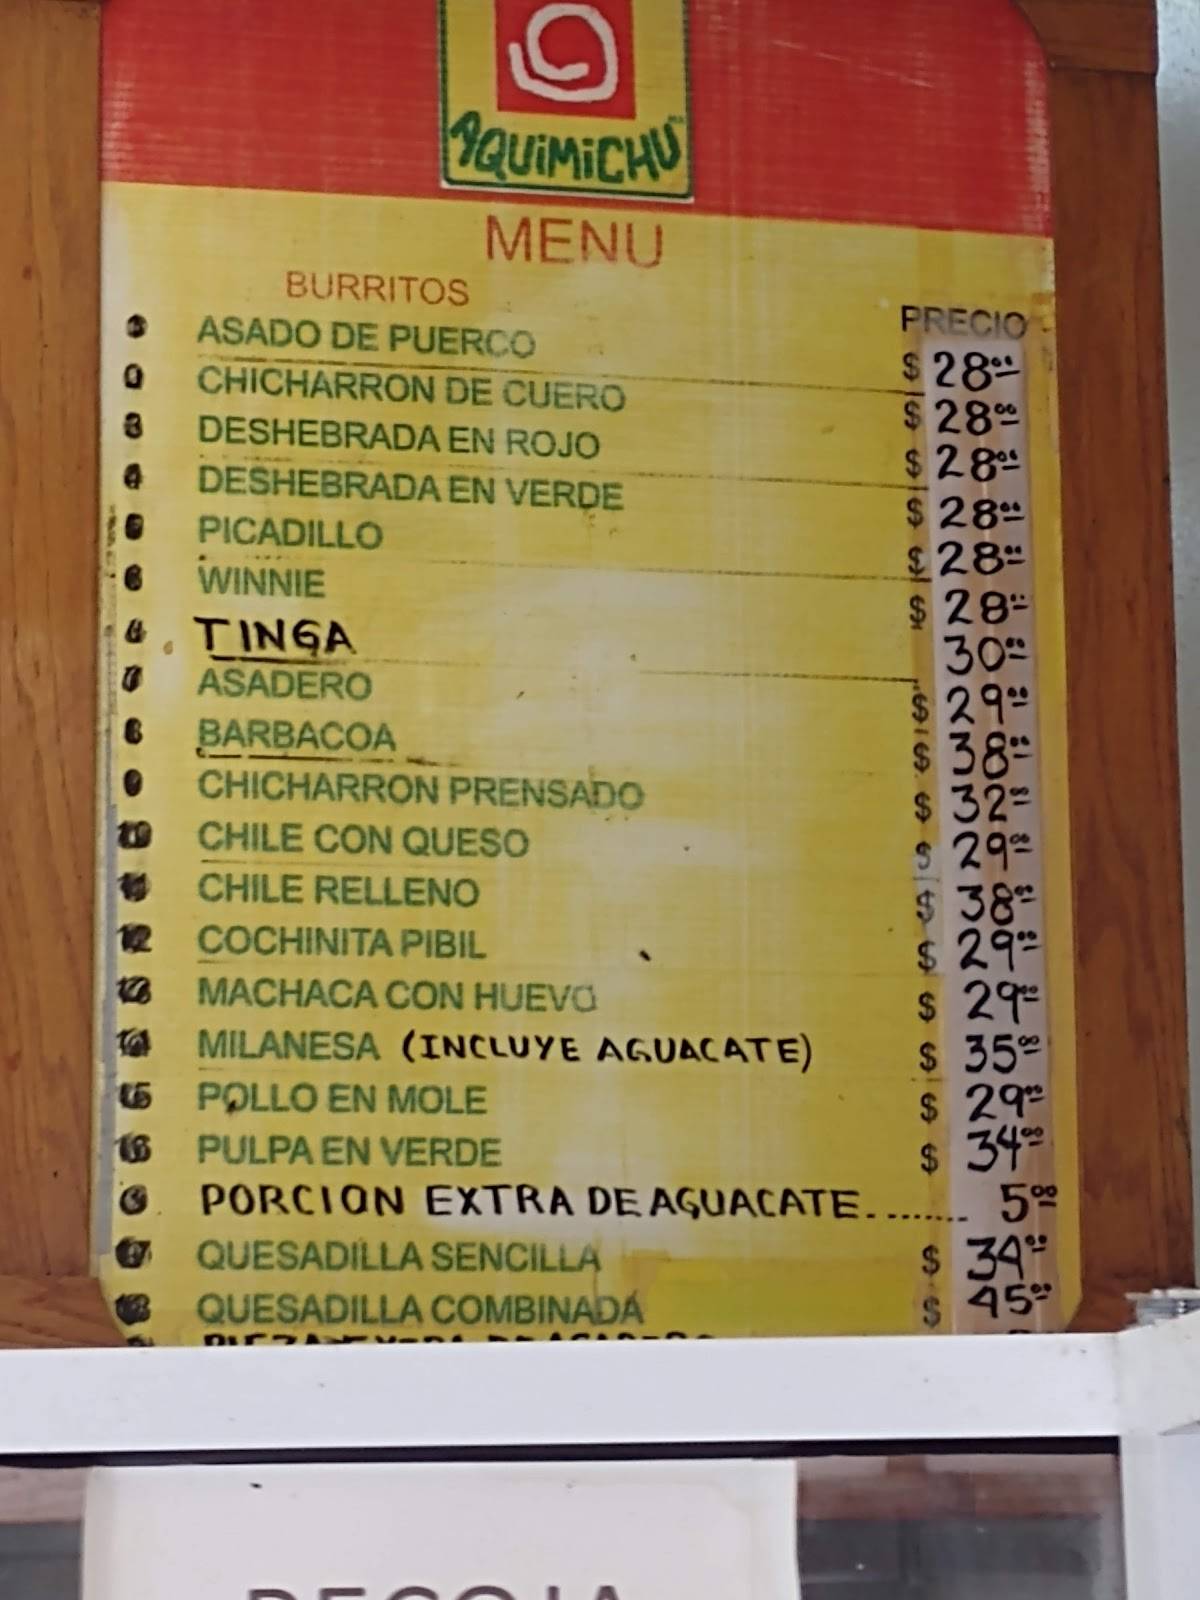 AQUIMICHU
MENU
BURRITOS
PRECIO
ASADO DE PUERCO $ 28.00
CHICHARRON DE CUERO $ 28.00
3 DESHEBRADA EN ROJO $ 28.00
4 DESHEBRADA EN VERDE $ 28.00
PICADILLO $ 28.00
6 WINNIE $ 28.00
TINGA 30.00
7 ASADERO $ 29.00
8 BARBACOA $ 38.00
9 CHICHARRON PRENSADO $ 32.00
10 CHILE CON QUESO $ 29.00
11 CHILE RELLENO $ 38.00
12 COCHINITA PIBIL $ 29.00
13 MACHACA CON HUEVO $ 29.00
14 MILANESA (INCLUYE AGUACATE) $ 35.00
15 POLLO EN MOLE $ 29.00
16 PULPA EN VERDE $ 34.00
PORCION EXTRA DE AGUACATE........ 5.00
17 QUESADILLA SENCILLA $ 34.00
18 QUESADILLA COMBINADA $ 45.00